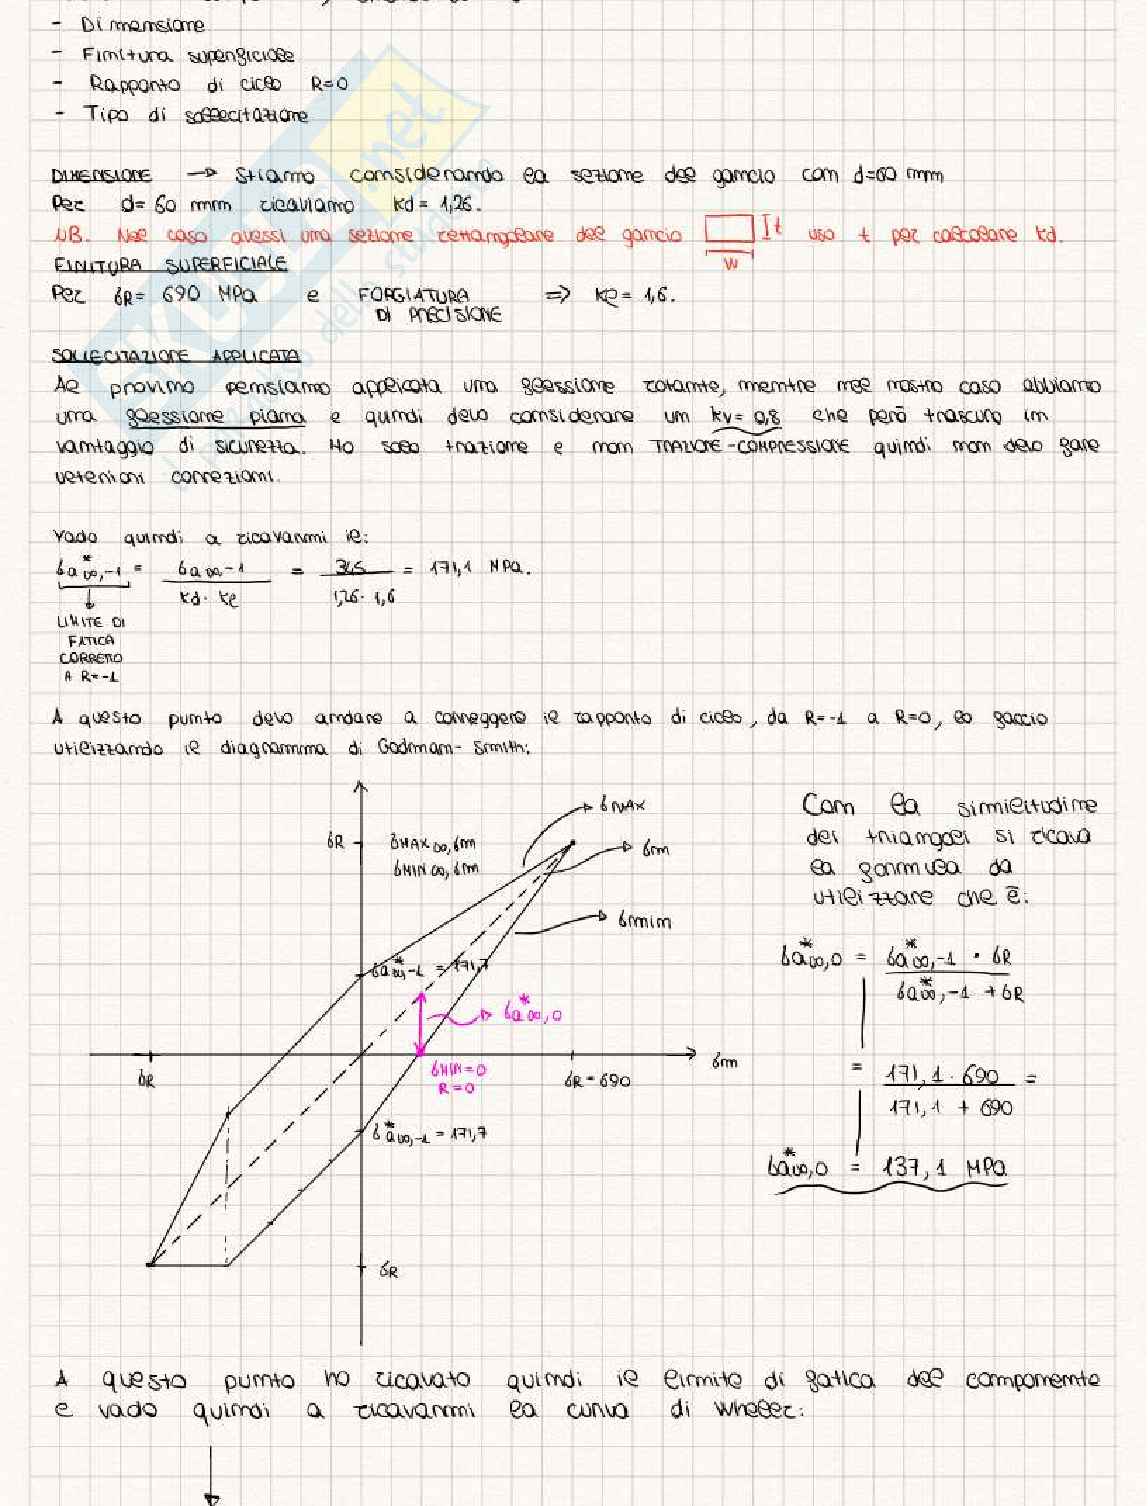 - Dimensione
- Finitura superficiale
- Rapporto di ciclo R=0
- Tipo di sollecitazione
DIMENSIONE → Stiamo considerando la sezione del gancio con d=60 mm
Per d= 60 mm ricaviamo Kd = 1,26.
NB. Nel caso avessi una sezione rettangolare del gancio t uso t per calcolare Kd.
W
FINITURA SUPERFICIALE
Per σR= 690 MPa e FORGIATURA DI PRECISIONE => Kl = 1,6.
SOLLECITAZIONE APPLICATA
Al provino pensiamo applicata una flessione rotante, mentre nel nostro caso abbiamo
una flessione piana e quindi devo considerare un Kv= 0,8 che però trascuro in
vantaggio di sicurezza. Ho solo trazione e non TRAZIONE-COMPRESSIONE quindi non devo fare
ulteriori correzioni.
Vado quindi a ricavarmi il:
σa*∞,-1 = σa∞,-1 / Kd · Kl = 345 / 1,26 · 1,6 = 171,1 MPa.
LIMITE DI
FATICA
CORRETTO
A R=-1
A questo punto devo andare a correggere il rapporto di ciclo, da R=-1 a R=0, lo faccio
utilizzando il diagramma di Godman-Smith:
σMAX
σR
σMAX∞,σm
σMIN∞,σm
σm
σmin
σa*∞,-1 = 171,7
σa*∞,0
σMIN=0
R=0
σm
σR
σR=690
σa*∞,-1 = 171,7
σR
Con la similitudine
dei triangoli si ricava
la formula da
utilizzare che è:
σa*∞,0 = σa*∞,-1 · σR / σa*∞,-1 + σR
= 171,1 · 690 / 171,1 + 690 =
σa*∞,0 = 137,1 MPa
A questo punto ho ricavato quindi il limite di fatica del componente
e vado quindi a ricavarmi la curva di Wholler: